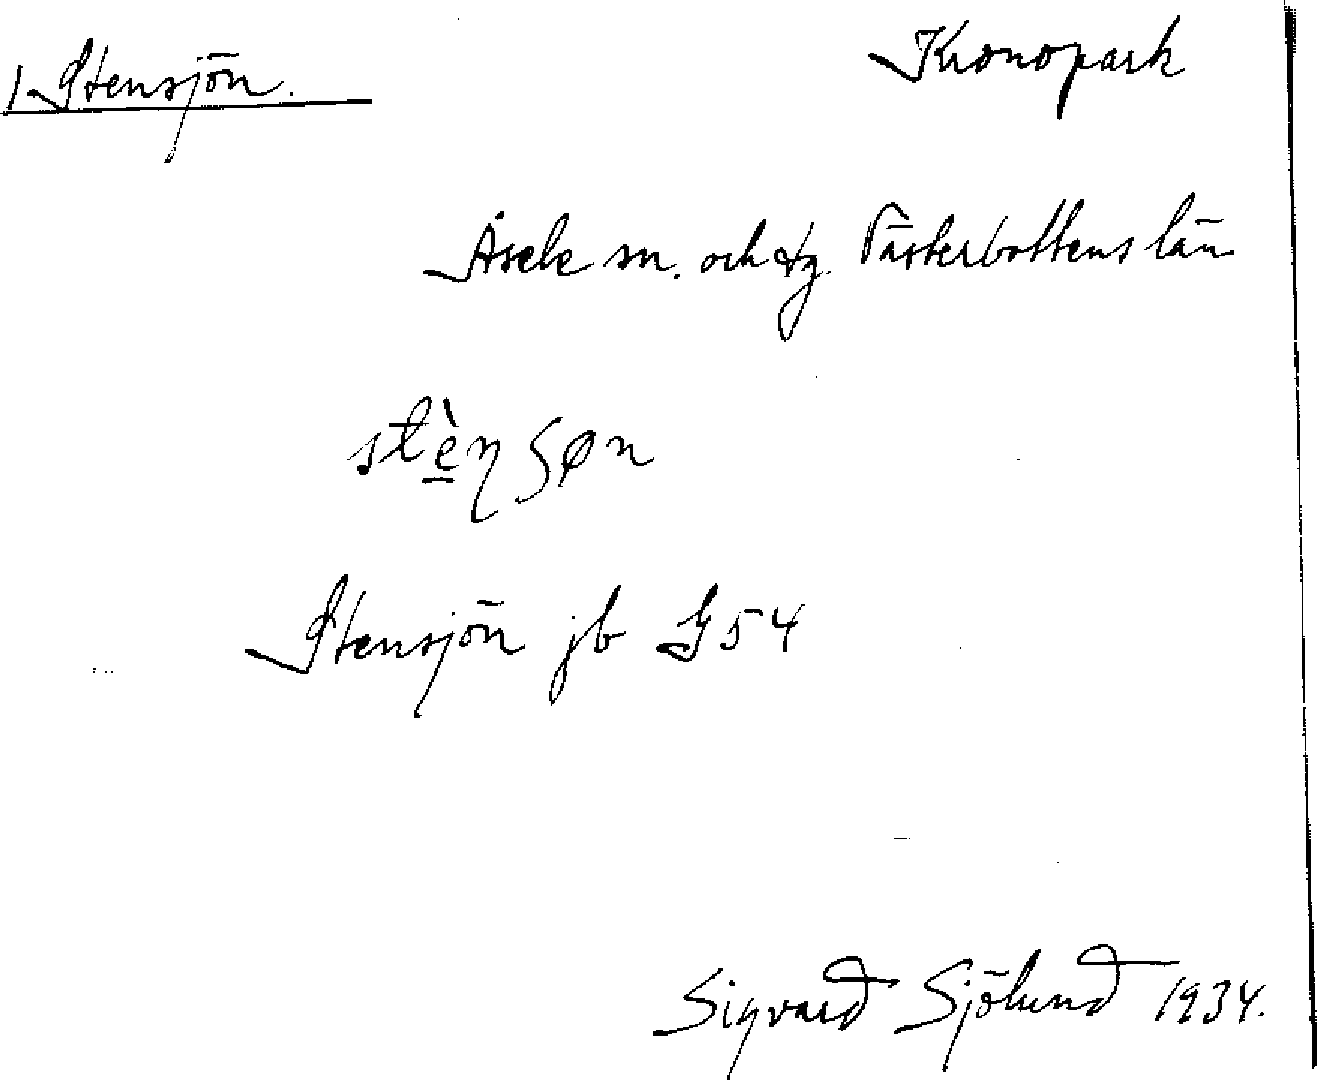 1 Stensjön. Kronopark
Åsele sn. och tg. Västerbottens län
stè̱ŋ ʂøn
Stensjön jb G54
Sigvard Sjölund 1934.